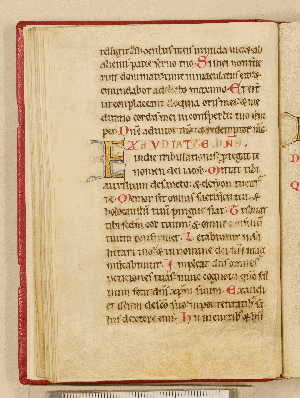 ab
alienis parce servo tuo. Si mei non fue
rint dominati tunc inmaculatus ero &
emundabor a delicto maximo. Et erunt
ut conplaceant eloquia oris mei: & me
ditatio cordis mei in conspectu tuo sem
per. Dne adiutor ms: & redemptor ms.
EXAUDIAT TE DNS
in die tribulationis: protegat te
nomen dei iacob. Mittat tibi
auxilium de sancto: & de syon
te. Memor sit omnis sacrificii tui: &
holocaustum tuum pingue fiat. Tribuat
tibi secdm cor tuum: & omne consilium
tuum confirmet. Letabimur in salu
tari tuo: & in nomine dei nri mag
nificabimur. Impleat dns omnes
petitiones tuas: nunc cognovi qm sal
vum fecit dns xpm suum. Exaudi
et illum de celo sco suo: in potentatib; sa
lus dextere eius. Hi in curribus & hi